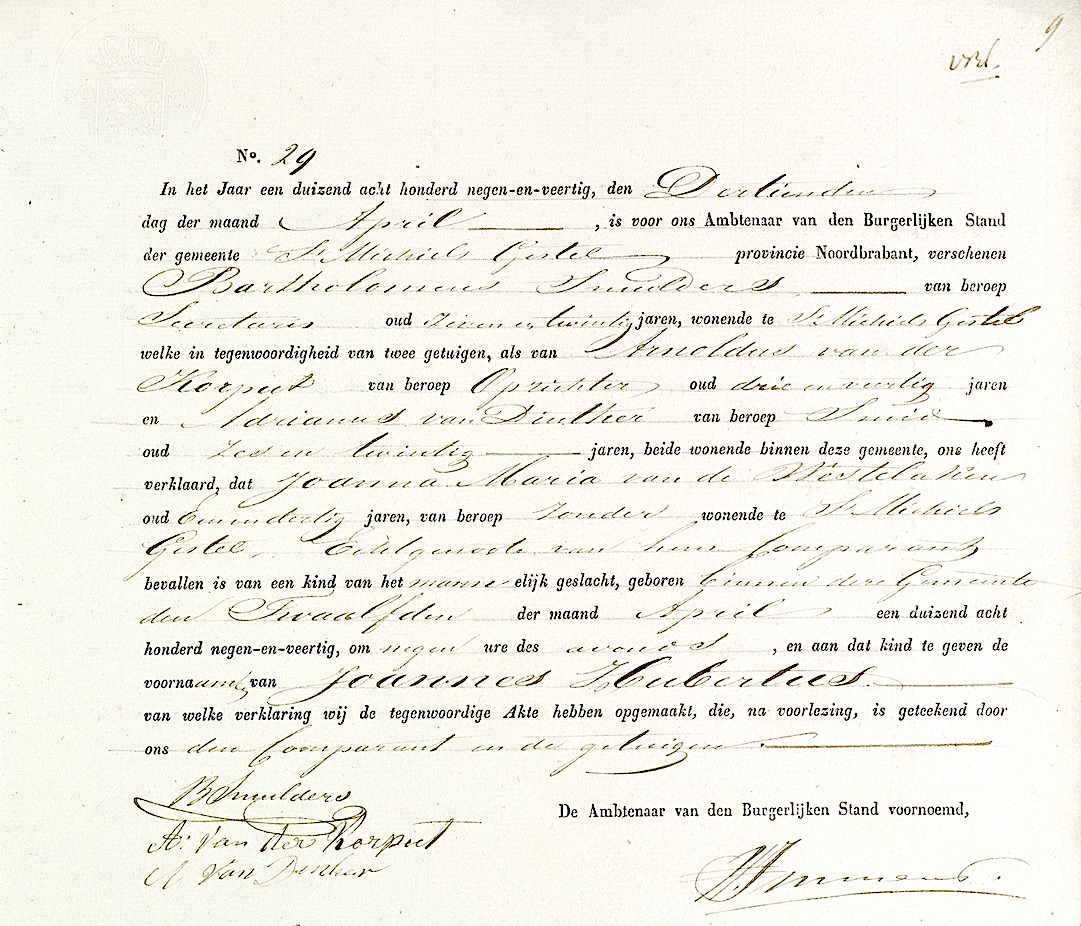 9
No. 29
In het Jaar een duizend acht honderd negen-en-veertig, den Dertienden
dag der maand April , is voor ons Ambtenaar van den Burgerlijken Stand
der gemeente St Michiels Gestel provincie Noordbrabant, verschenen
Bartholomeus Smulders van beroep
Secretaris oud Zeven en twintig jaren, wonende te St Michiels Gestel
welke in tegenwoordigheid van twee getuigen, als van Arnoldus van der
Korput van beroep Oprichter oud drie en veertig jaren
en Adrianus van Dinther van beroep Smid
oud Zes en twintig jaren, beide wonende binnen deze gemeente, ons heeft
verklaard, dat Joanna Maria van de Westelaken
oud Een en dertig jaren, van beroep Zonder wonende te St Michiels
Gestel, Echtgenoote van hem Comparant
bevallen is van een kind van het mannelijk geslacht, geboren binnen deze Gemeente
den Twaalfden der maand April een duizend acht
honderd negen-en-veertig, om negen ure des avonds , en aan dat kind te geven de
voornaamen van Joannes Hubertus
van welke verklaring wij de tegenwoordige Akte hebben opgemaakt, die, na voorlezing, is geteekend door
ons den Comparant en de getuigen.
B Smulders
De Ambtenaar van den Burgerlijken Stand voornoemd,
A: Van der Korput
A Van Dinther